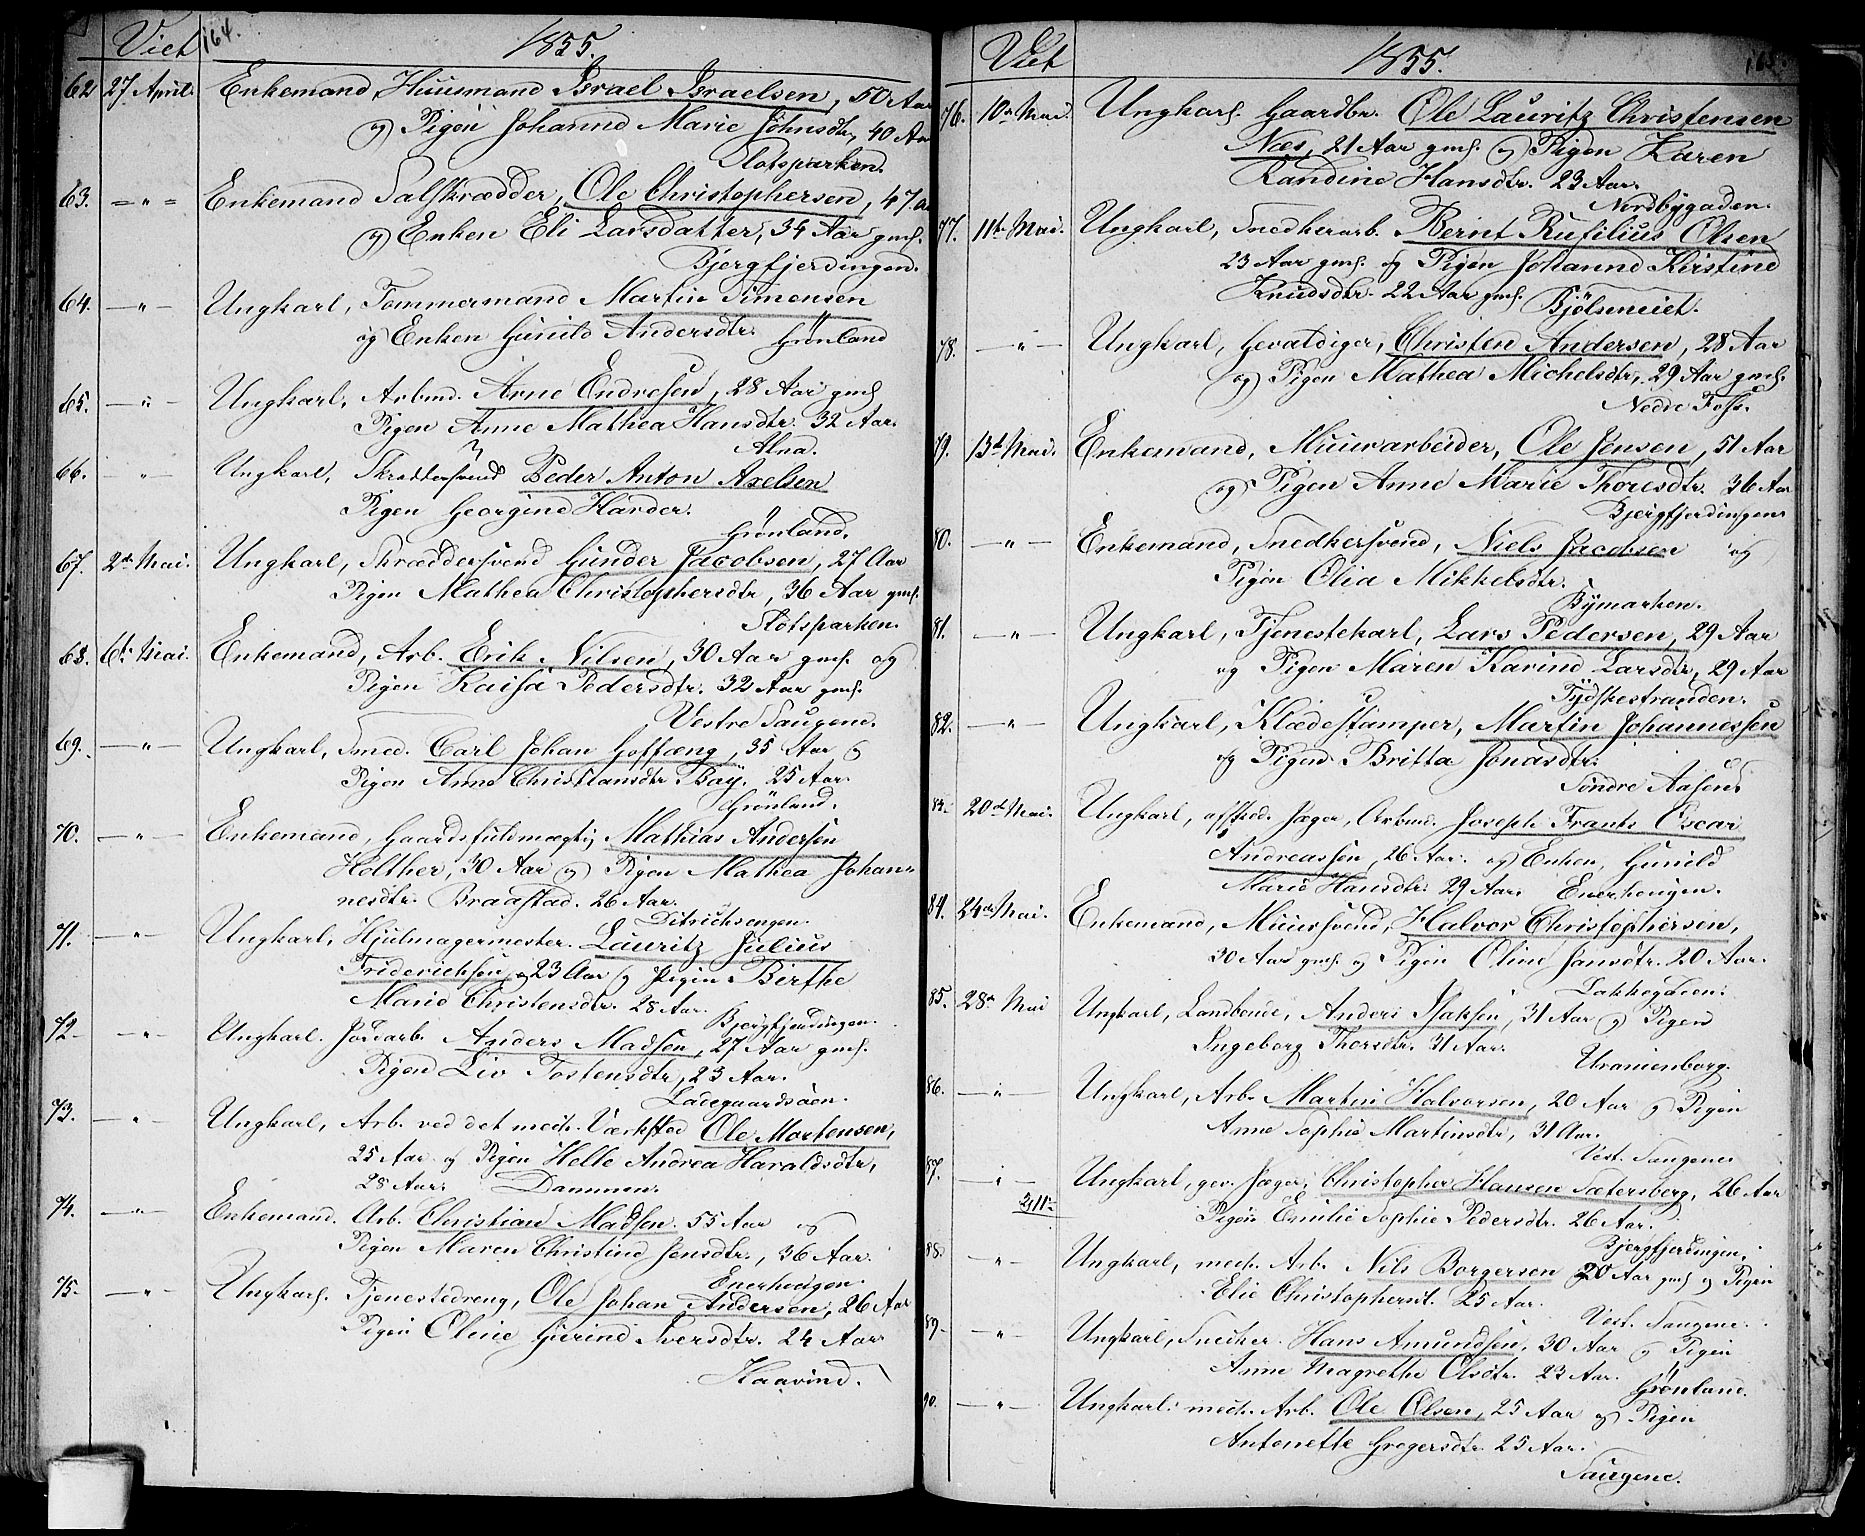 Viet 164. 1855.
62 27. April. Enkemand, Huusmand Israel Israelsen, 50 Aar
og Pigen Johanne Marie Johnsdtr, 40 Aar
Slotsparken.
63. = " = Enkemand Salskrædder, Ole Christophersen, 47 a
og Enken Eli Larsdatter, 34 Aar gml.
Bjergfjerdingen.
64. — " — Ungkarl, Tømmermand Martin Simensen
og Enken Gunild Andersdtr. Grønland
65. — " — Ungkarl, Arbmd. Arne Endresen, 28 Aar gml
Pigen Anne Mathea Hansdtr. 32 Aar.
Alna.
66. " Ungkarl, Skrædersvend Peder Anton Axelsen
Pigen Georgine Harder.
Grønland.
67. 2de Mai. Ungkarl, Skræddersvend Gunder Jacobsen, 27 Aar
Pigen Mathea Christophersdtr, 36 Aar gml.
Slotsparken.
68. 6te Mai. Enkemand, Arb. Erik Nilsen, 30 Aar gml. og
Pigen Kaisa Pedersdtr. 32 Aar gml.
Vestre Saugene.
69. — " — Ungkarl, Smed. Carl Johan Hoffæng, 35 Aar og
Pigen Anne Christiansdtr Bay, 25 Aar.
Grønland.
70. — " — Enkemand, Gaardsfuldmægtig Mathias Andersen
Holther, 30 Aar og Pigen Mathea Johan=
nesdtr. Braastad. 26 Aar.
Ditrichsengen.
71. — " — Ungkarl, Hjulmagermester. Lauritz Julius
Friderichsen, 23 Aar og Pigen Birthe
Marie Christensdtr. 28 Aar.
Bjergfjerdingen.
72 — " — Ungkarl. Jordarb. Anders Madsen, 27 Aar gml.
Pigen Liv Tostensdtr, 23 Aar.
Ladegaardsøen.
73. — " — Ungkarl, Arb. ved det mech. Værksted Ole Mortensen,
25 Aar og Pigen Helle Andrea Haraldsdtr,
28 Aar. Dammen.
74. — " — Enkemand. Arb. Christian Madsen. 55 Aar og
Pigen Maren Christine Jensdtr., 36 Aar.
Enerhougen.
75. — " — Ungkarl. Tjenestedreng, Ole Johan Andersen, 26 Aar
Pigen Oline Gurine Iversdtr. 24 Aar
Haavind.
Viet 1855. 165.
76. 10de Mai. Ungkarl. Gaardbr. Ole Lauritz Christensen
Næs, 21 Aar gml. og Pigen Karen
Randine Hansdtr. 23 Aar.
Nordbygaden.
77. 11te Mai. Ungkarl, Snedkerarb. Bernt Rufilius Olsen
23 Aar gml. og Pigen Johanne Kirstine
Knudsdtr. 22 Aar gml. Bjølseneiet.
78. — " — Ungkarl, Gevaldiger, Christen Andersen, 28 Aar
og Pigen Mathea Michelsdtr, 29 Aar gml.
Nedre Foss.
79. 13de Mai. Enkemand, Muurarbeider, Ole Jensen, 51 Aar
og Pigen Anne Marie Thoresdtr. 36 Aar
Bjergfjerdingen
80. — " — Enkemand, Snedkersvend, Niels Jacobsen og
Pigen Olia Mikkelsdtr.
Bymarken.
81. — " — Ungkarl, Tjenestekarl, Lars Pedersen, 29 Aar
og Pigen Maren Karine Larsdtr, 29 Aar
Tydskestranden.
82. — " — Ungkarl, Klædestamper, Martin Johannessen
og Pigen Britta Jonasdtr.
Søndre Aasen.
83. 20de Mai. Ungkarl, afsked. Jæger, Arbmd. Joseph Frants Oscar
Andreassen, 26 Aar. og Enken, Gunild
Marie Hansdtr. 29 Aar. Enerhougen.
84. 24de Mai. Enkemand, Muursvend, Halvor Christophersen,
30 Aar gml. og Pigen Oline Jansdtr. 20 Aar.
Lakkegaden.
85. 28de Mai Ungkarl, Landbonde, Anders Isaksen, 31 Aar og Pigen
Ingeborg Thorsdtr. 31 Aar.
Uranienborg.
86. — " — Ungkarl, Arb. Martin Halvorsen, 20 Aar og Pigen
Anne Sophie Martinsdtr, 31 Aar.
Vest. Saugene
87. — " — Ungkarl, gev. Jæger, Christopher Hansen Sætersberg, 26 Aar
Pigen Emilie Sophie Pedersdtr. 26 Aar.
Bjergfjerdingen.
88. — " — Ungkarl, mech. Arb. Nils Borgersen 20 Aar gml og Pigen
Elie Christophersd. 25 Aar.
Vest. Saugene.
89. — " — Ungkarl, Snedker. Hans Amundsen, 30 Aar og Pigen
Anne Magrethe Olsdtr. 23 Aar.
Grønland.
90. — " — Ungkarl. mech. Arb. Ole Olsen, 25 Aar og Pigen
Antonette Gregersdtr. 25 Aar.
Saugene.